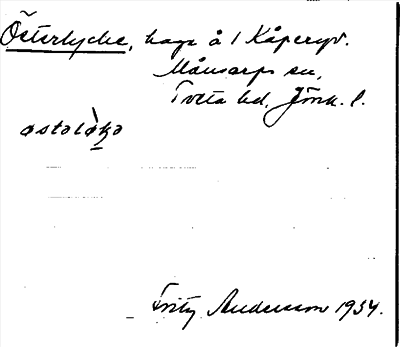 Österlycke, hage å 1 Kåperyd.
Månsarps sn,
Tveta hd, Jönk. l.
østalø̀kа
Fritz Andersson 1934.